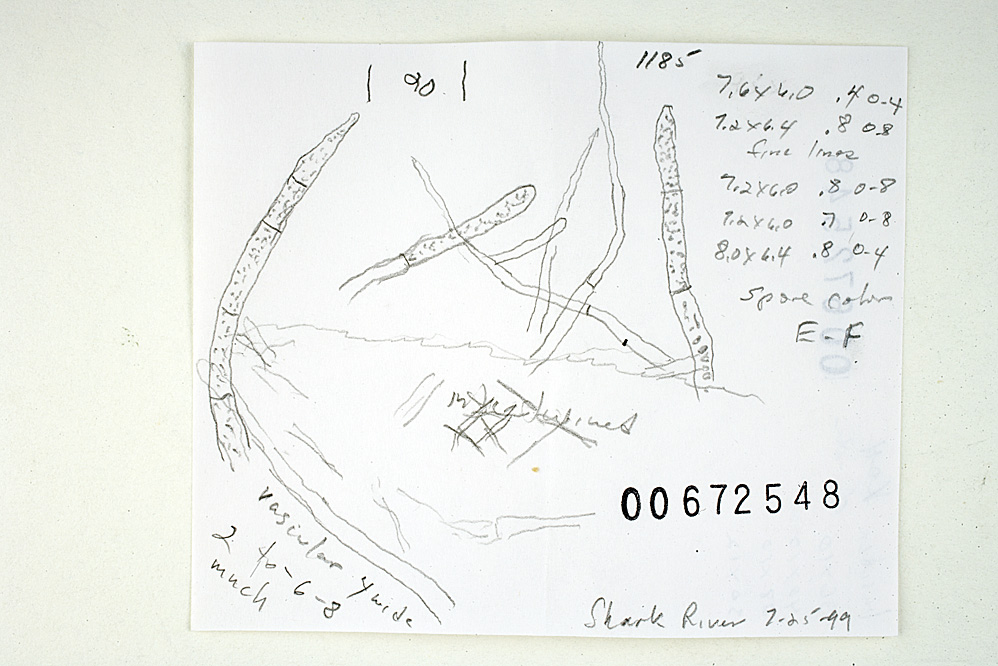 | 90 |
1185
7.6x6.0 .4 0-4
7.2x6.4 .8 0-8
fine lines
7.2x6.0 .8 0-8
7.2x6.0 .7 0-8
8.0x6.4 .8 0-4
spore column
E-F
00672548
vascular 4 wide
2 to-6-8
much
Shark River 7-25-99